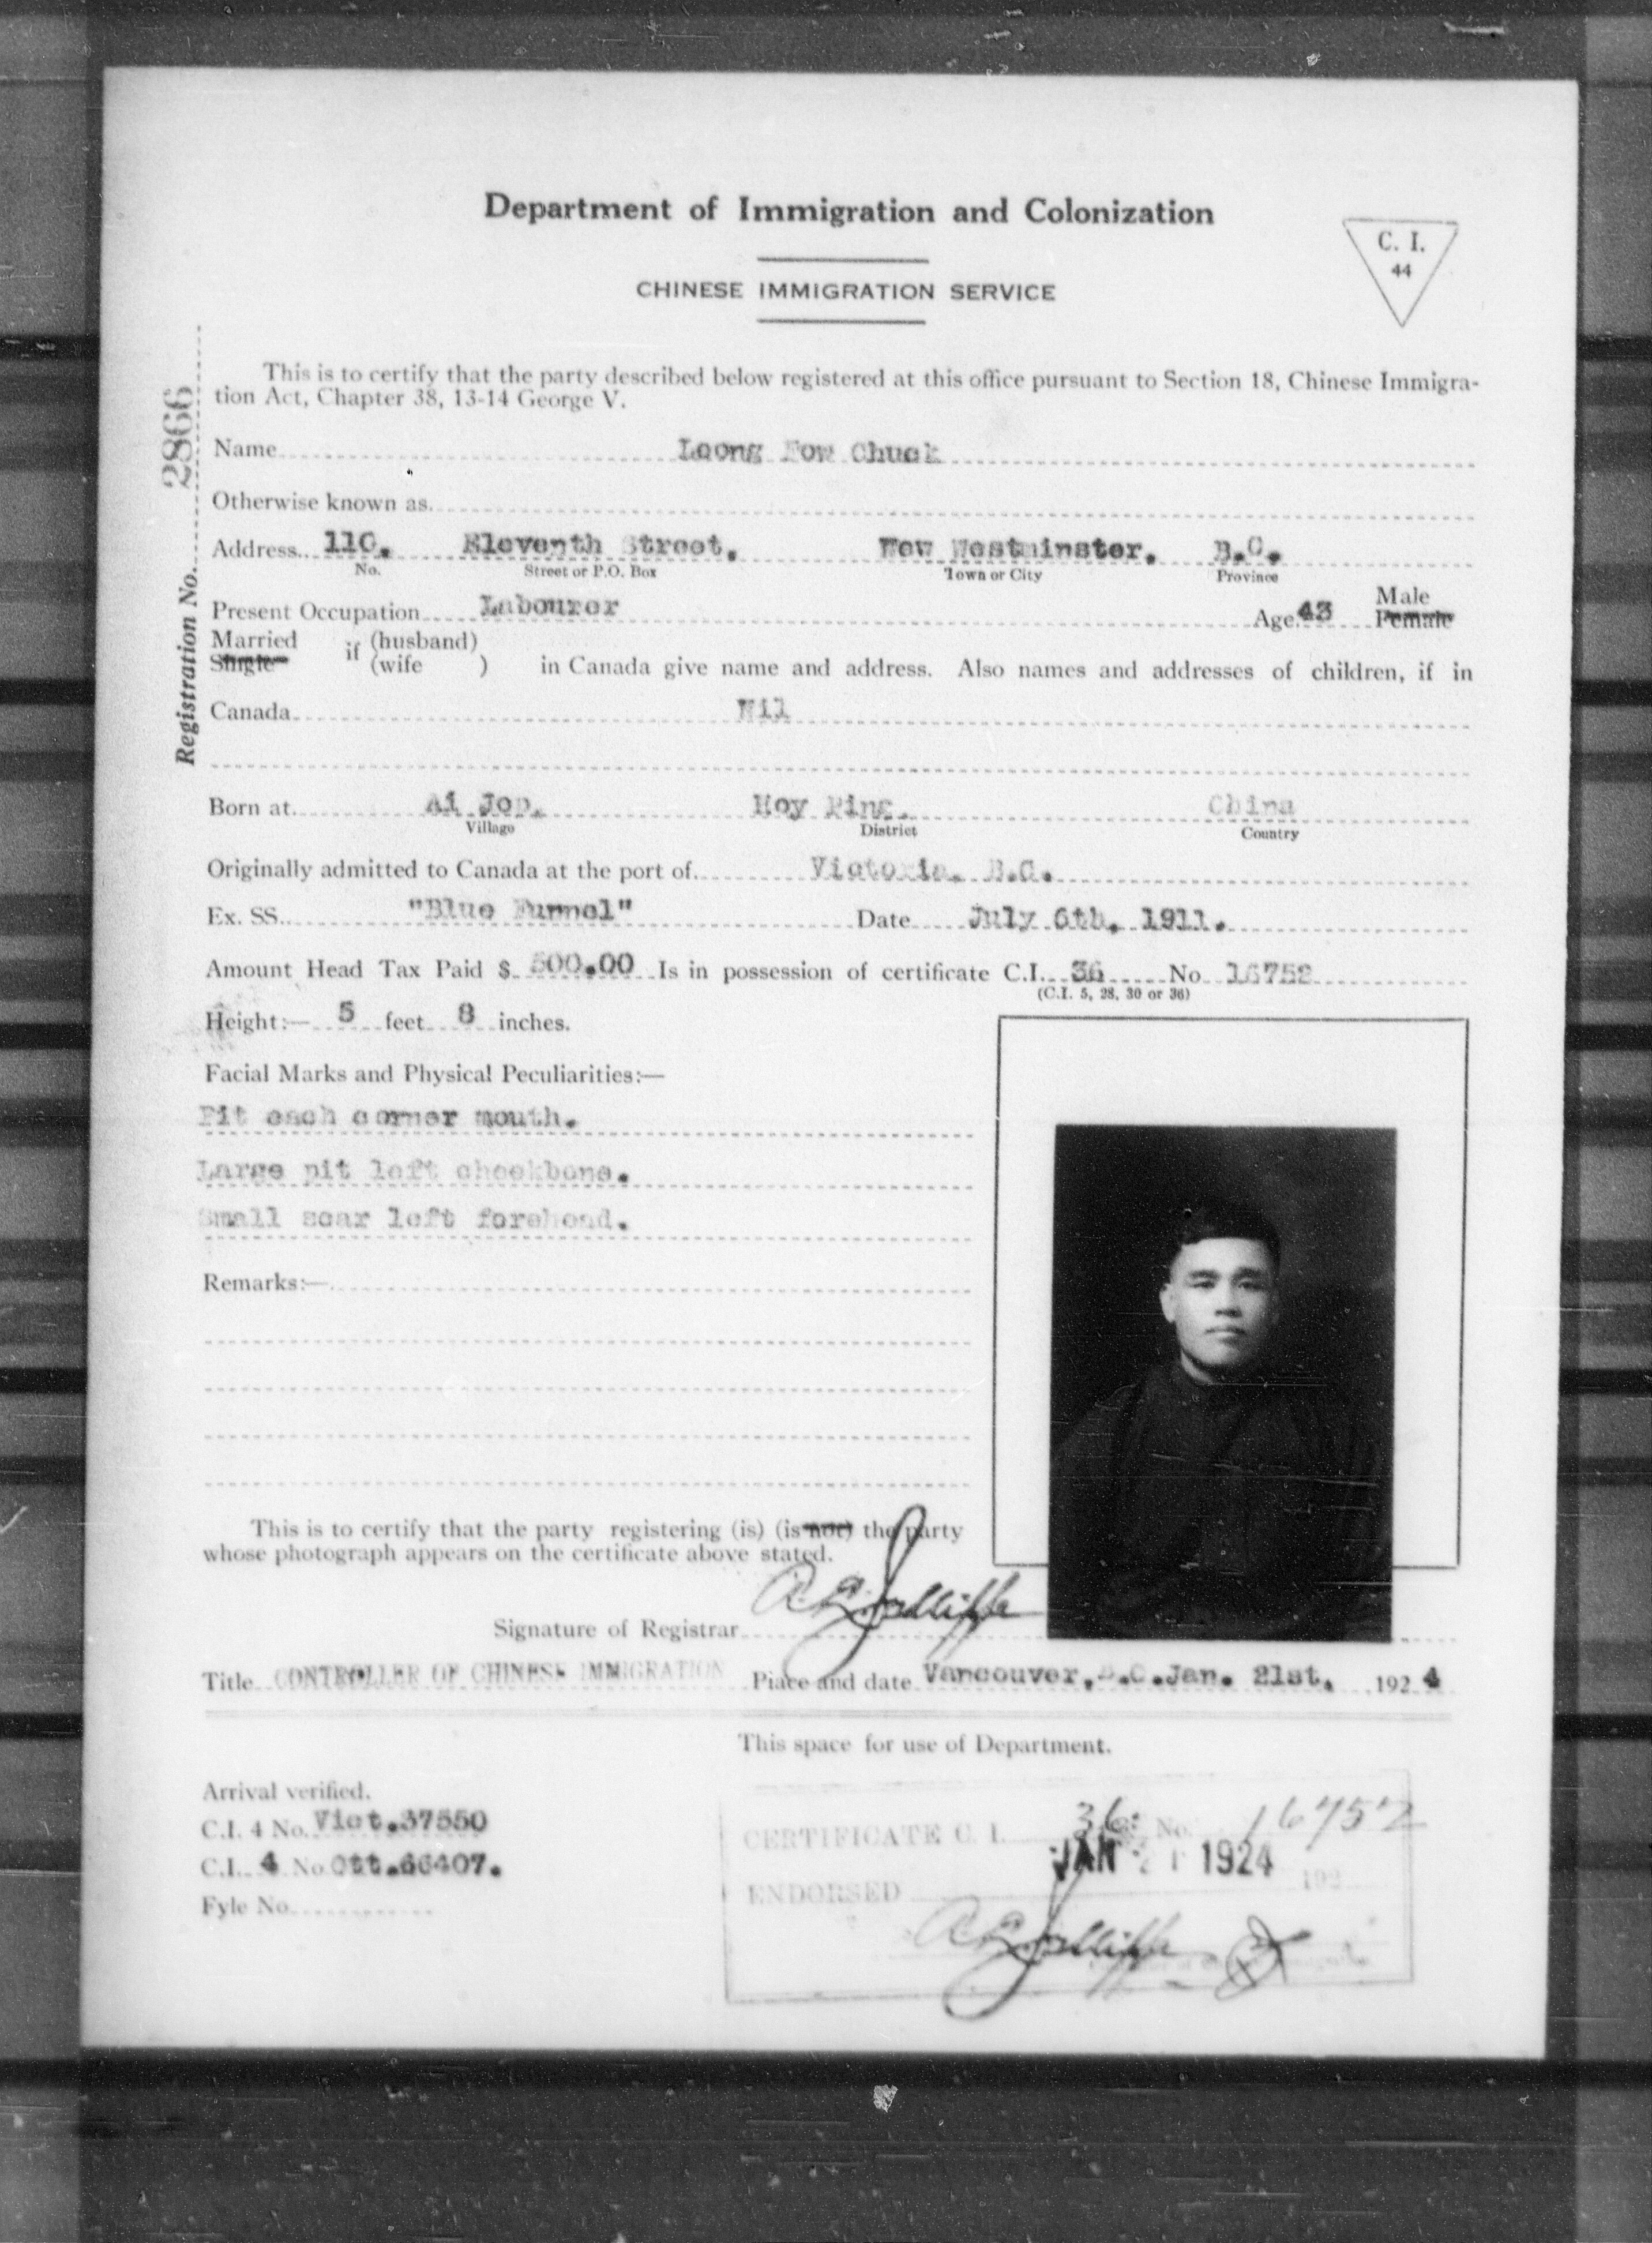 Department of Immigration and Colonization
C. I.
44
CHINESE IMMIGRATION SERVICE
Registration No. 2866
This is to certify that the party described below registered at this office pursuant to Section 18, Chinese Immigra-
tion Act, Chapter 38, 13-14 George V.
Name Loong Fow Chuck
Otherwise known as
Address 110. Eleventh Street. New Westminster. B.C.
No. Street or P.O. Box Town or City Province
Present Occupation Labourer Age 43 Male
Female
Married if (husband)
Single (wife ) in Canada give name and address. Also names and addresses of children, if in
Canada Nil
Born at Ai Jop. Hoy Ping. China
Village District Country
Originally admitted to Canada at the port of Victoria. B.C.
Ex. SS. "Blue Funnel" Date July 6th. 1911.
Amount Head Tax Paid $ 500.00 Is in possession of certificate C.I. 36 No 16752
(C.I. 5, 28, 30 or 36)
Height:— 5 feet 8 inches.
Facial Marks and Physical Peculiarities:—
Pit each corner mouth.
Large pit left cheekbone.
Small scar left forehead.
Remarks:—
This is to certify that the party registering (is) (is not) the party
whose photograph appears on the certificate above stated.
Signature of Registrar
Title CONTROLLER OF CHINESE IMMIGRATION Place and date Vancouver, B.C. Jan. 21st. 1924
This space for use of Department.
Arrival verified.
C.I. 4 No. Vict.37550
C.I. 4 No Ott.66407.
Fyle No.
CERTIFICATE C. I. 36 No. 16752
JAN 21 1924
ENDORSED 192